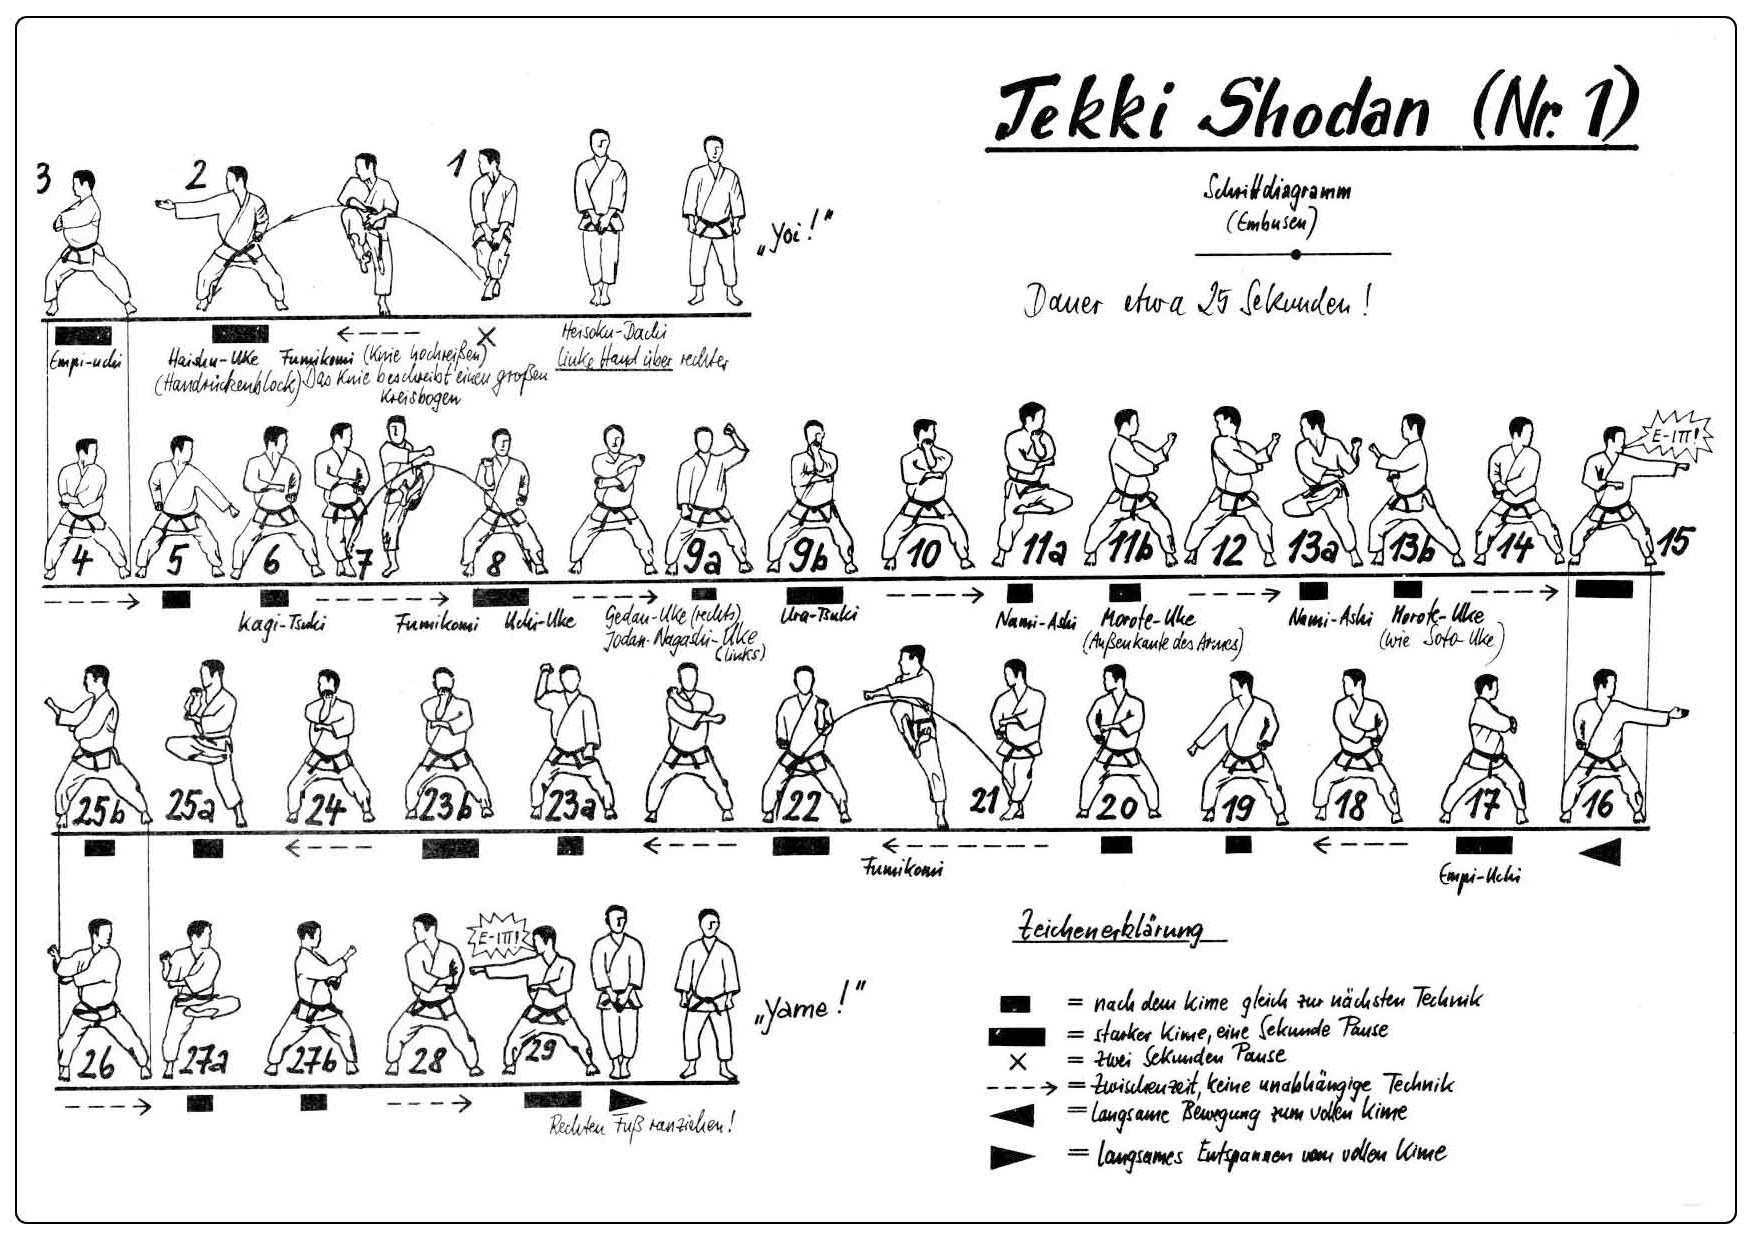 Tekki Shodan (Nr. 1)
Schrittdiagramm
(Embusen)
Dauer etwa 25 Sekunden!
3
2
1
„Yoi!"
Empi-uchi
Haishu-Uke
(Handrückenblock)
Fumikomi (Knie hochreißen)
Das Knie beschreibt einen großen
Kreisbogen
Heisoku-Dachi
linke Hand über rechter
E-ITT!
4 5 6 7 8 9a 9b 10 11a 11b 12 13a 13b 14 15
Kagi-Tsuki
Fumikomi
Uchi-Uke
Gedan-Uke (rechts)
Jodan-Nagashi-Uke
(links)
Ura-Tsuki
Nami-Ashi
Morote-Uke
(Außenkante des Armes)
Nami-Ashi
Morote-Uke
(wie Soto-Uke)
25b 25a 24 23b 23a 22 21 20 19 18 17 16
Fumikomi
Empi-Uchi
E-ITT!
26 27a 27b 28 29
„Yame!"
Rechten Fuß ranziehen!
Zeichenerklärung
= nach dem Kime gleich zur nächsten Technik
= starker Kime, eine Sekunde Pause
= zwei Sekunden Pause
= Zwischenzeit, keine unabhängige Technik
= langsame Bewegung zum vollen Kime
= langsames Entspannen vom vollen Kime